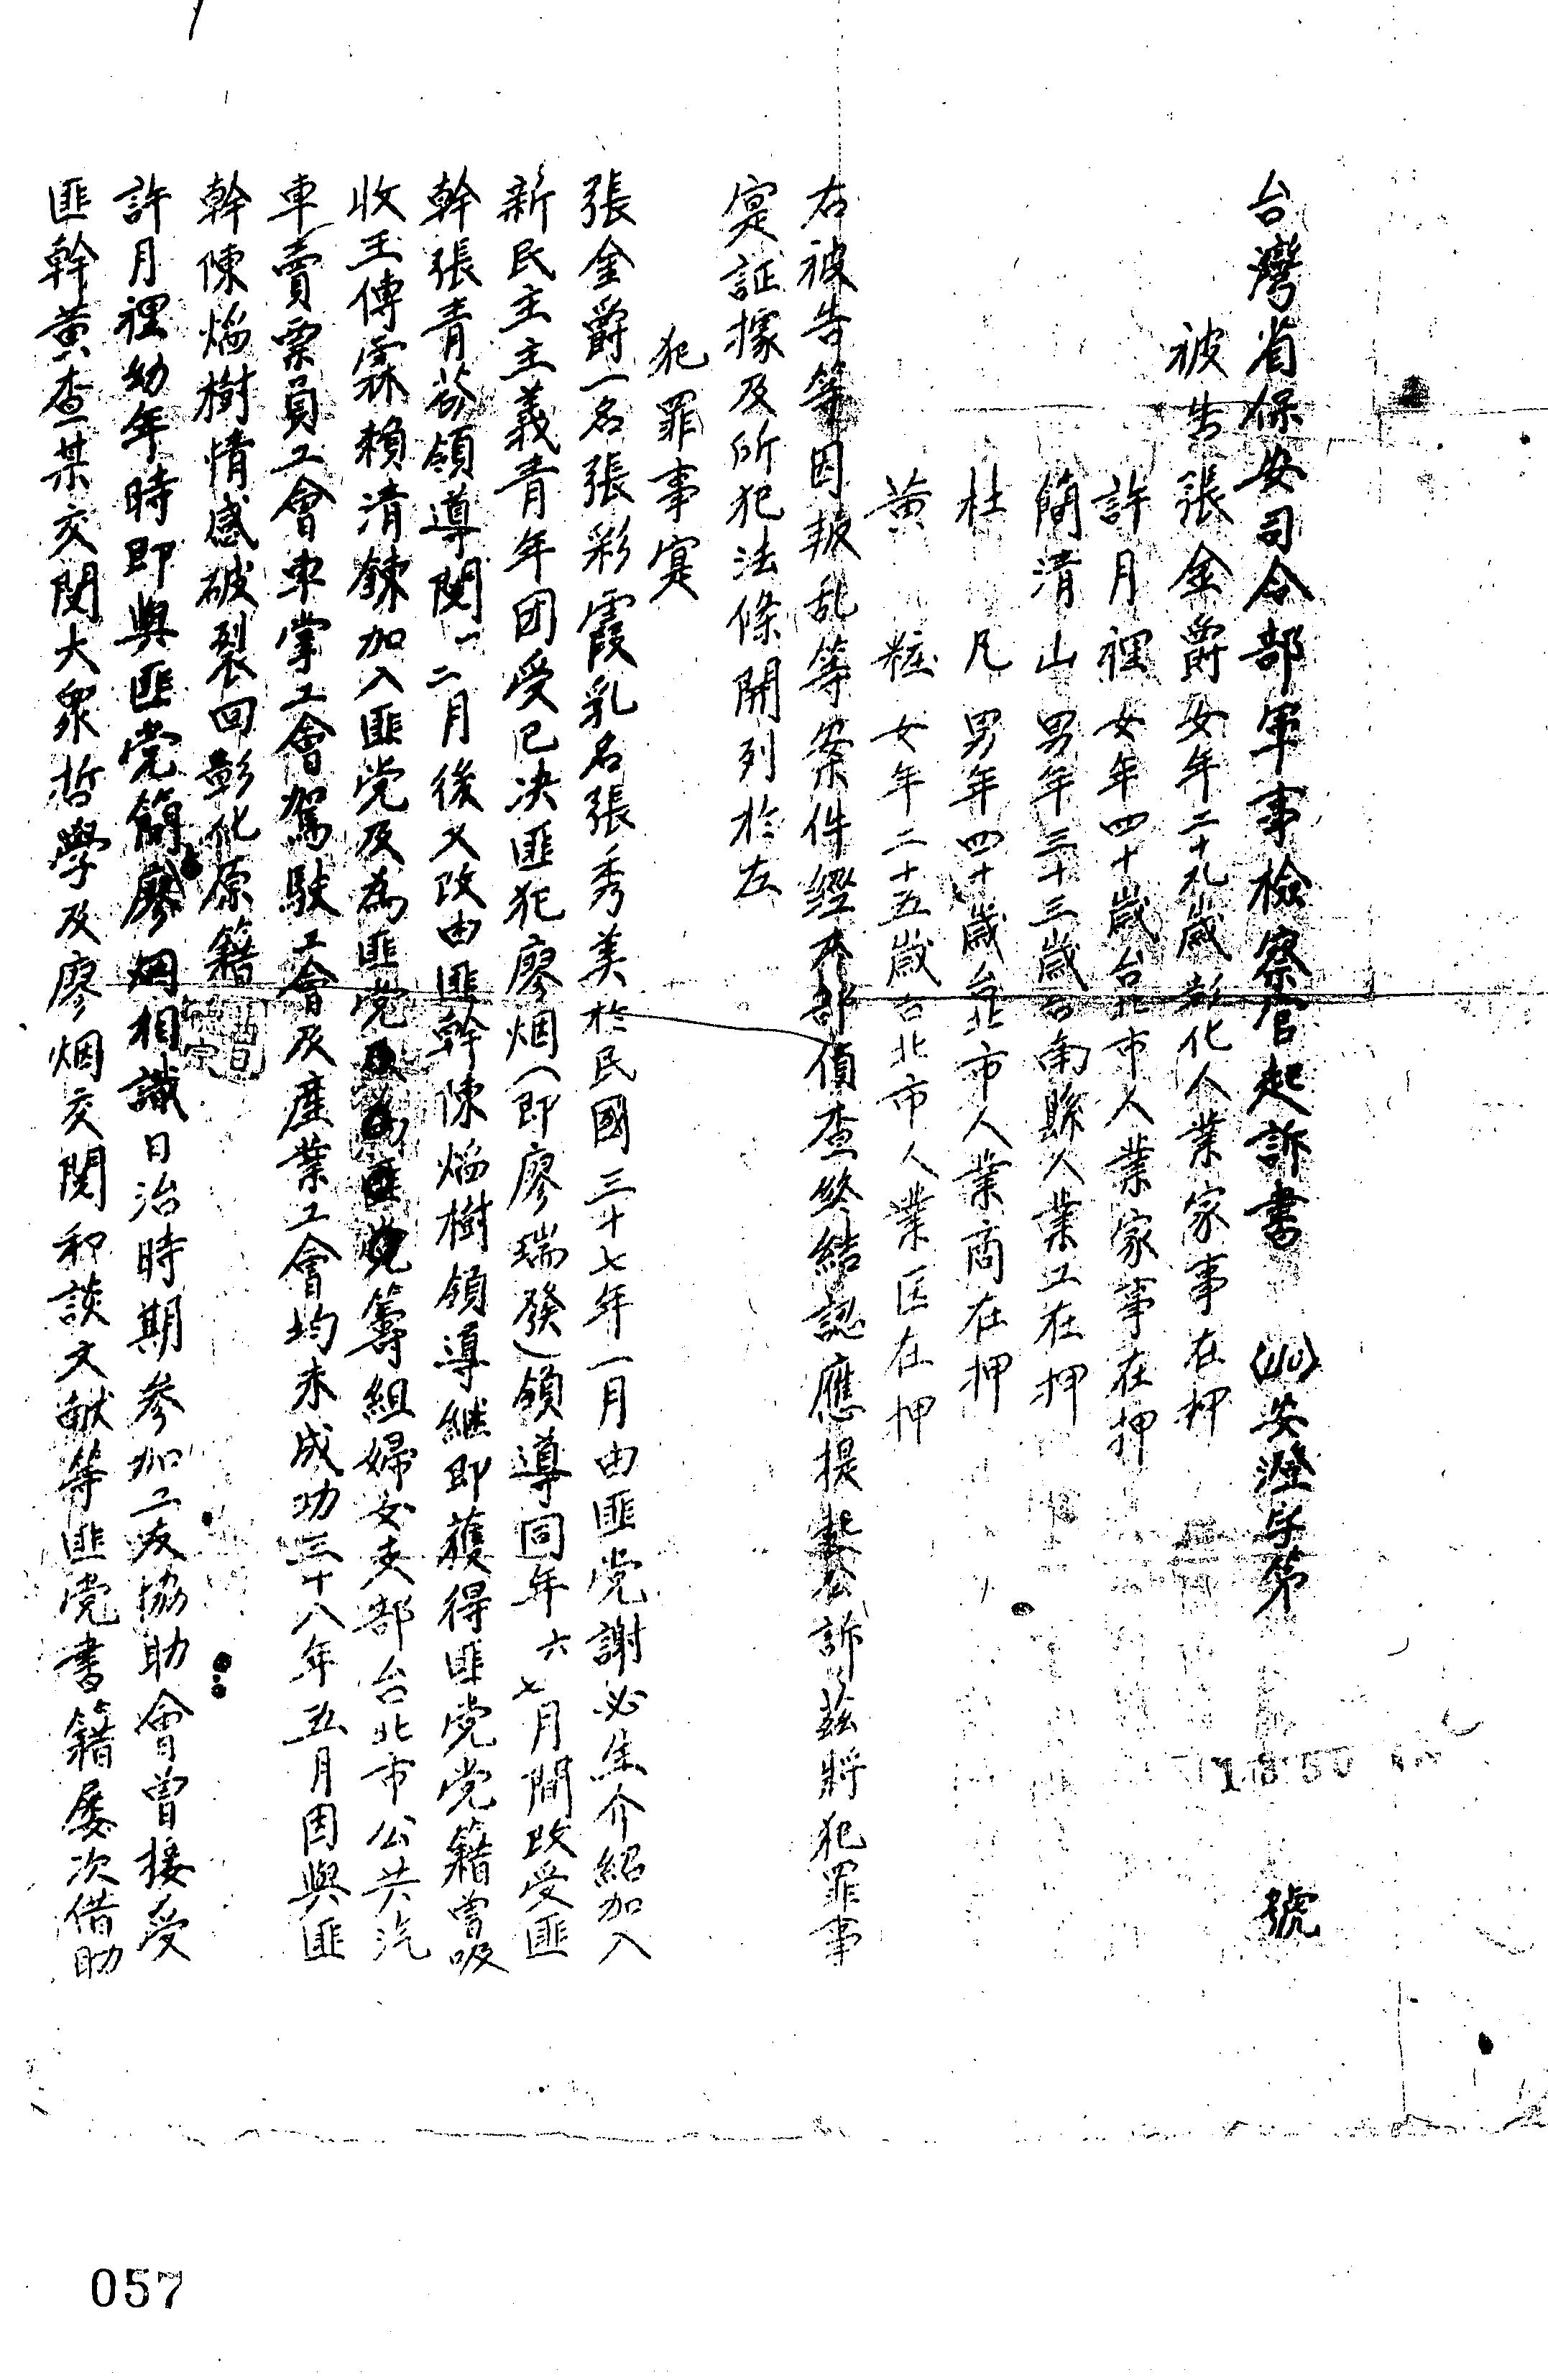 台灣省保安司令部軍事檢察官起訴書 (40)安澄字第 1850 號
被告 張金爵 女年二十九歲彰化人業家事在押
許月裡 女年四十歲台北市人業家事在押
簡清山 男年三十三歲台南縣人業工在押
杜 凡 男年四十歲台北市人業商在押
黃 粧 女年二十五歲台北市人業医在押
右被告等因叛乱等案件經本部偵查終結認應提起公訴茲將犯罪事
寔証據及所犯法條開列於左
犯罪事寔
張金爵一名張彩霞乳名張秀美於民國三十七年一月由匪党謝必生介紹加入
新民主主義青年团受已决匪犯廖烟(即廖瑞發)領導同年六七月間改受匪
幹張青 領導関一二月後又改由匪幹陳焰樹領導継即獲得匪党党籍曾吸
收王傳霖賴清鍊加入匪党及為匪党籌組婦女支部台北市公共汽
車賣票員工會車掌工會駕駛工會及產業工會均未成功三十八年五月因與匪
幹陳焰樹情感破裂回彰化原籍
許月裡幼年時即與匪党簡 廖烟相識日治時期参加工友協助會曾接受
匪幹黃查某交閱大眾哲學及廖烟交閱和談文献等匪党書籍屡次借助
057